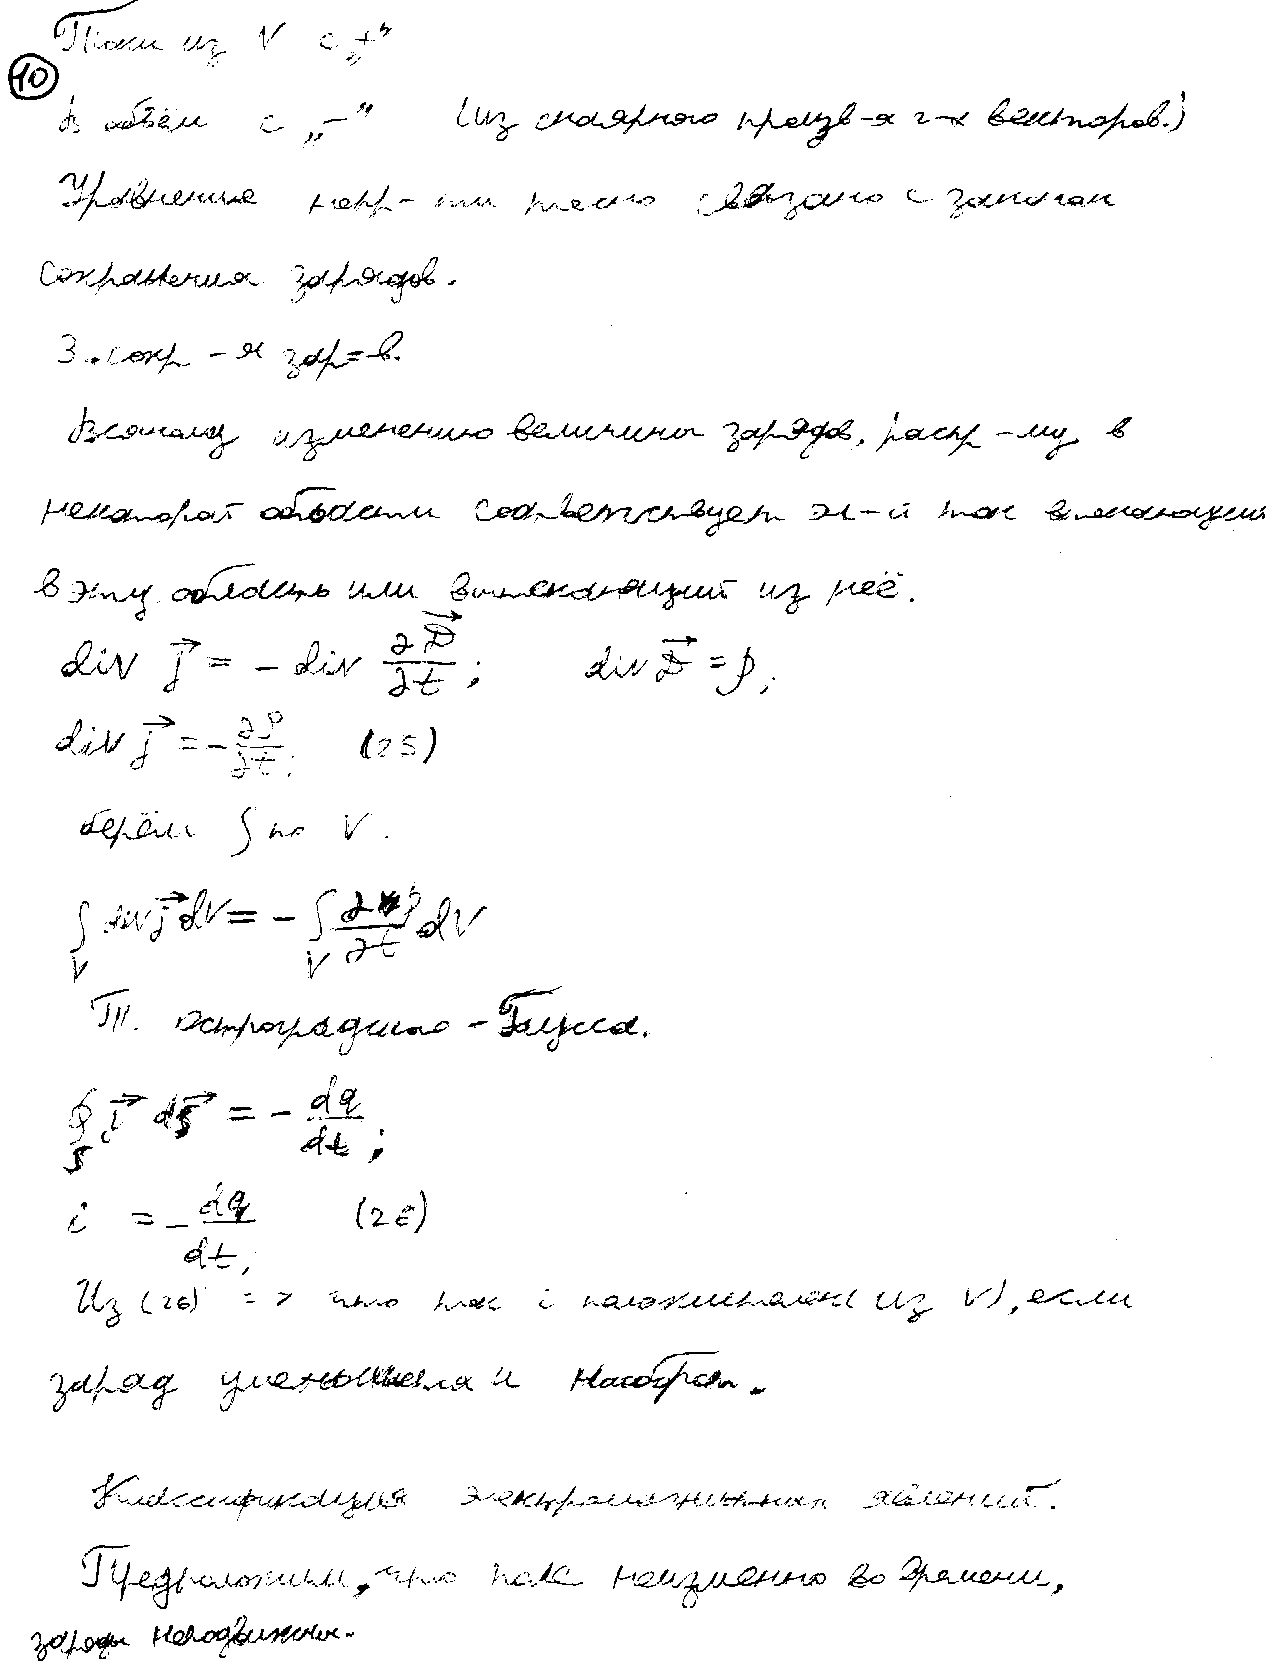 Токи из V с „+"
10
В объём с „–" (из скалярного произв-я 2-х векторов.)
Уравнение непр-ти тесно связано с законом
сохранения зарядов.
З. сохр-я зар-в.
Всякому изменению величины зарядов, распр-му в
некоторой области соответствует эл-й ток втекающий
в эту область или вытекающий из неё.
div j⃗ = - div ∂D⃗/∂t; div D⃗ = ρ;
div j⃗ = - ∂ρ/∂t; (25)
берём ∫ по V.
∫_V div j⃗ dV = - ∫_V ∂ρ/∂t dV
Т. Остроградского-Гаусса.
∮_S i⃗ ds⃗ = - dq/dt;
i = - dq/dt; (26)
Из (26) => что ток i положителен (из V), если
заряд уменьшен и наобром.
Классификация электромагнитных явлений.
Предположим, что поле неизменно во времени,
заряды неподвижны.